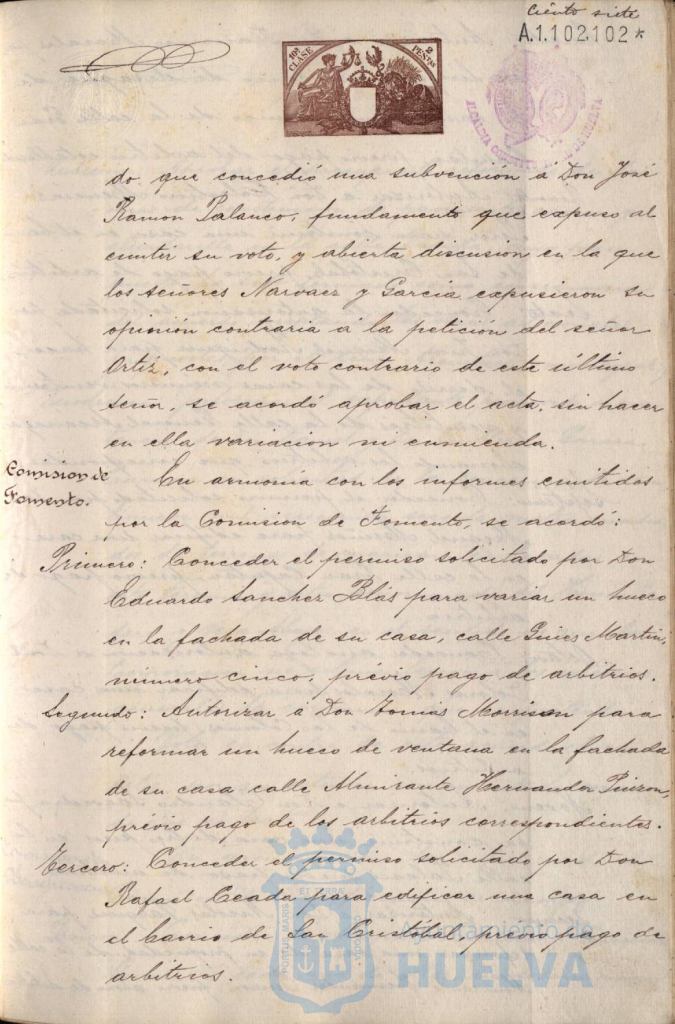 Ciento siete
A.1.102.102*
10ª CLASE
2 PESTAS
ALCALDIA HUELVA
do que concedió una subvención á Don José
Ramon Palanco, fundamento que expuso al
emitir su voto, y abierta discusion en la que
los señores Narvaez y Garcia expusieron su
opinión contraria á la petición del señor
Ortiz, con el voto contrario de este último
señor, se acordó aprobar el acta, sin hacer
en ella variacion ni enmienda.
Comision de
Fomento.
En armonia con los informes emitidos
por la Comision de Fomento, se acordó:
Primero: Conceder el permiso solicitado por Don
Eduardo Sanchez Blás para variar un hueco
en la fachada de su casa, calle Martin,
número cinco, prévio pago de arbitrios.
Segundo: Autorizar á Don Tomás Morrison para
reformar un hueco de ventana en la fachada
de su casa calle Almirante Hernandez Pinzon,
prévio pago de los arbitrios correspondientes.
Tercero: Conceder el permiso solicitado por Don
Rafael Ceada para edificar una casa en
el barrio de San Cristóbal, prévio pago de
arbitrios.
Ayuntamiento de
HUELVA